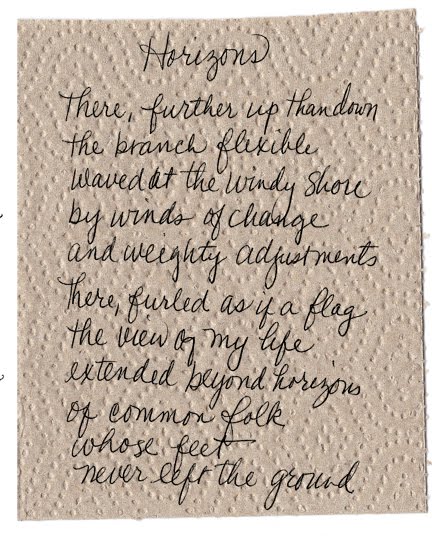 Horizons
There, further up than down
the branch flexible
waved at the windy shore
by winds of change
and weighty adjustments
There, furled as if a flag
the view of my life
extended beyond horizons
of common folk
whose feet
never left the ground